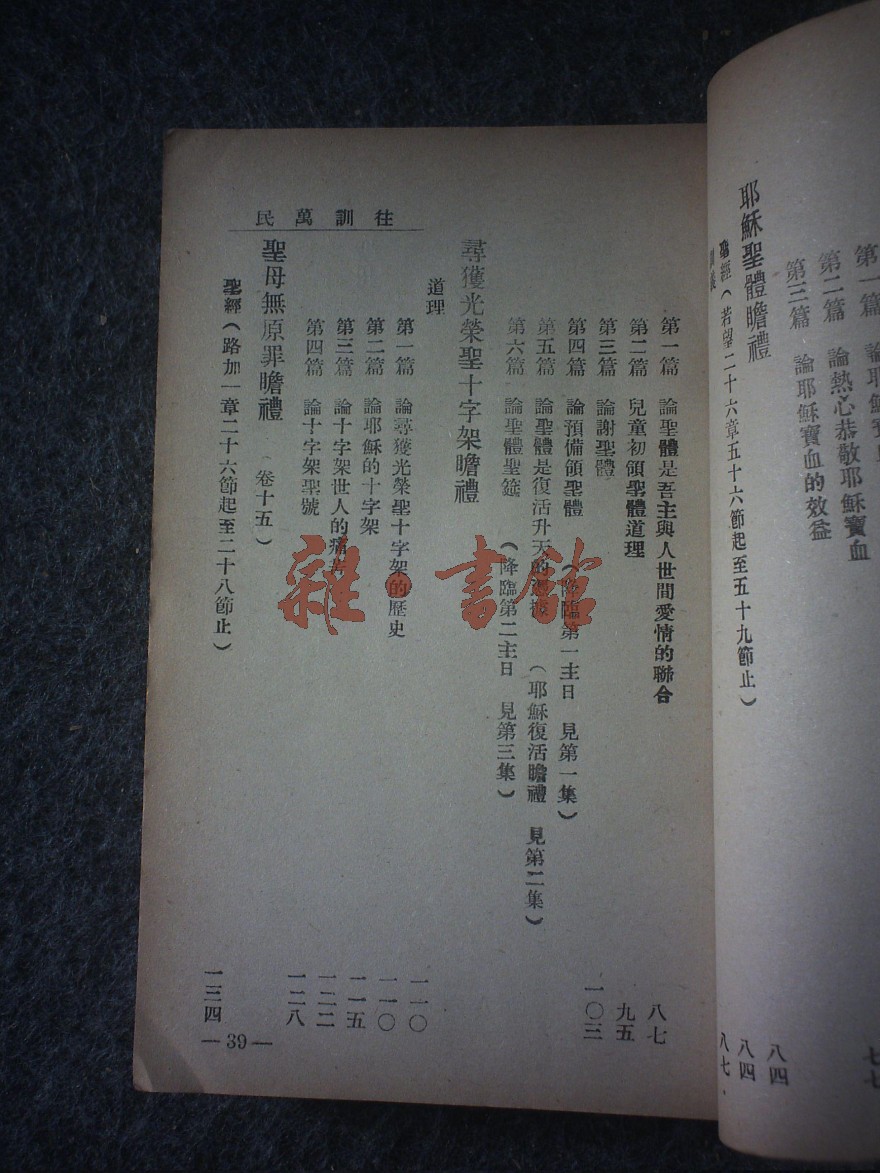 第一篇 論耶穌寶
七七
第二篇 論熱心恭敬耶穌寶血
第三篇 論耶穌寶血的效益
八四
耶穌聖體瞻禮
聖經(若望二十六章五十六節起至五十九節止) 八四
八七
往訓萬民
第一篇 論聖體是吾主與人世間愛情的聯合 八七
第二篇 兒童初領聖體道理 九五
第三篇 論謝聖體 一〇三
第四篇 論預備領聖體 (降臨第一主日 見第一集)
第五篇 論聖體是復活升天的憑據 (耶穌復活瞻禮 見第二集)
第六篇 論聖體聖筵 (降臨第二主日 見第三集)
尋獲光榮聖十字架瞻禮
道理 一一〇
第一篇 論尋獲光榮聖十字架的歷史 一一〇
第二篇 論耶穌的十字架 一一五
第三篇 論十字架世人的痛苦 一二二
第四篇 論十字架聖號 一二八
聖母無原罪瞻禮 (卷十五)
聖經(路加一章二十六節起至二十八節止) 一三四
—39—
雜書館